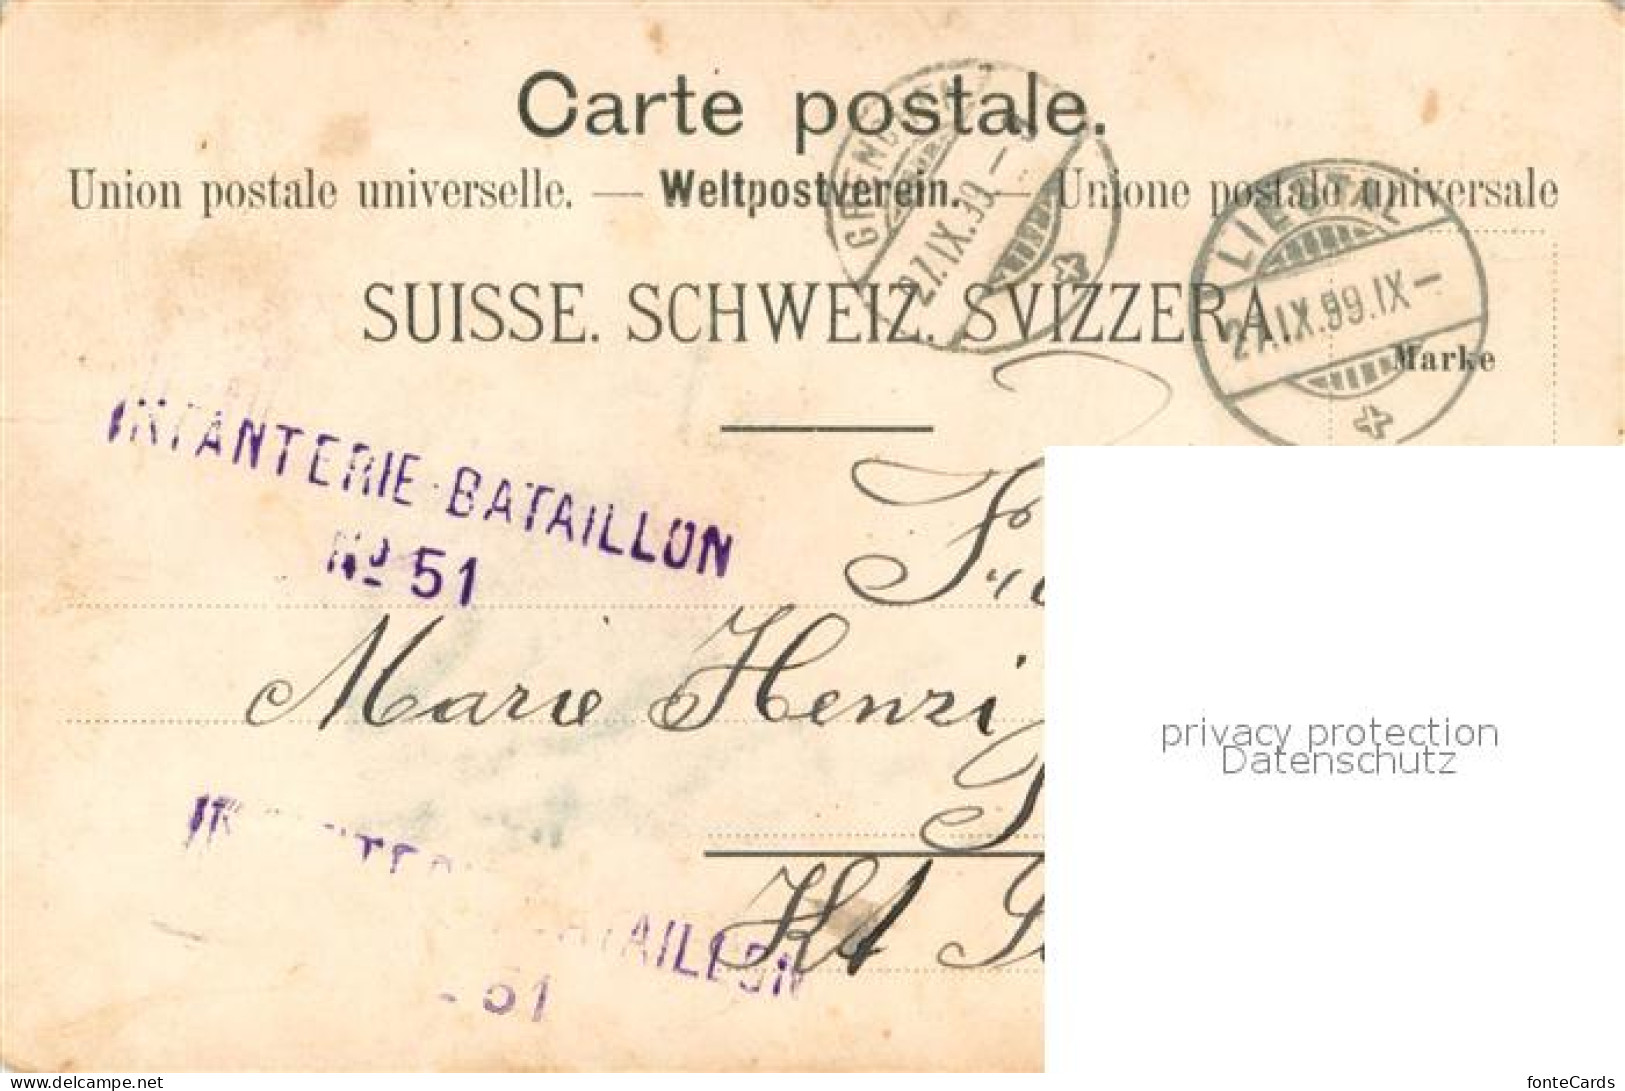 Carte postale.
Union postale universelle. — Weltpostverein. — Unione postale universale
SUISSE. SCHWEIZ. SVIZZERA.
GRENCHEN
27.IX.99.
LIESTAL
27.IX.99.IX–
Marke
INFANTERIE-BATAILLON
No 51
Marie Henzi
BATAILLON
51
Kt
privacy protection
Datenschutz
www.delcampe.net
fonteCards